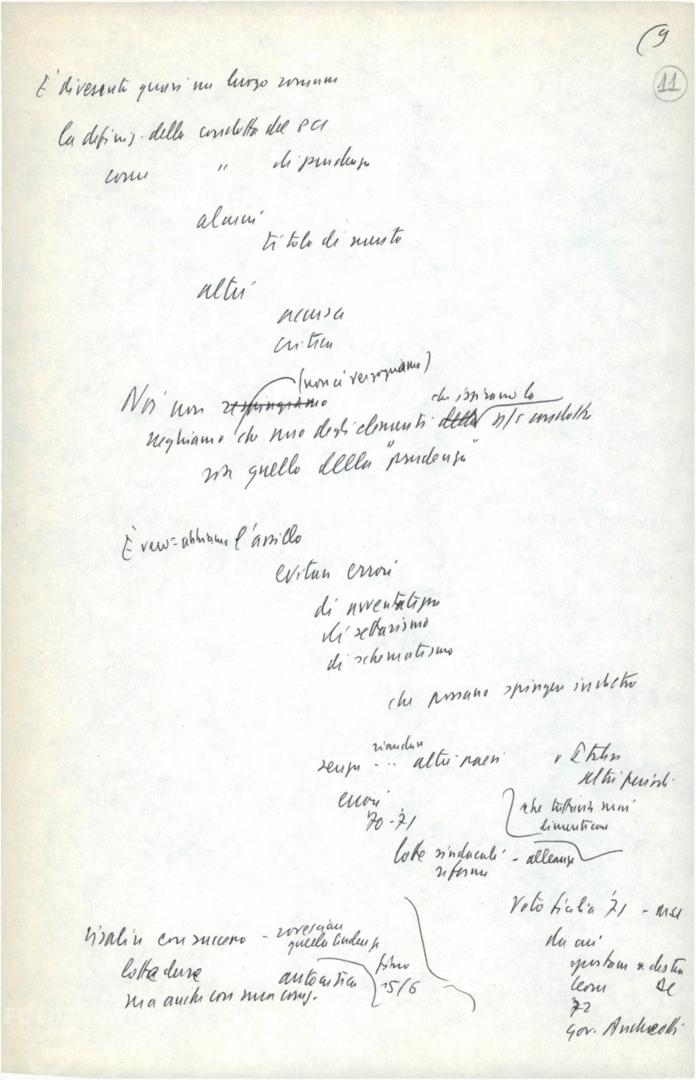 (9
11
È diventato quasi un luogo comune
la definiz. della condotta del PCI
come " di prudenza
alcuni
titolo di merito
altri
accusa
critica
(non ci vergogniamo)
Noi non respingiamo
che ispirano la
neghiamo che uno degli elementi della n/s condotta
sia quello della "prudenza"
È vero = abbiamo l'assillo
evitare errori
di avventatismo
di settarismo
di schematismo
che possano spingere indietro
riandare
senza ... altri paesi
o Italia
altri periodi
errori
70-71
che tuttavia mai
dimenticare
lotte sindacali - alleanze
riforme
Voto Sicilia '71 - MSI
da cui
spostam. a destra
Leone DC
72
gov. Andreotti
risalire con successo - rovesciare
quella tendenza
lotta dura
ma anche con
autocritica
15/6